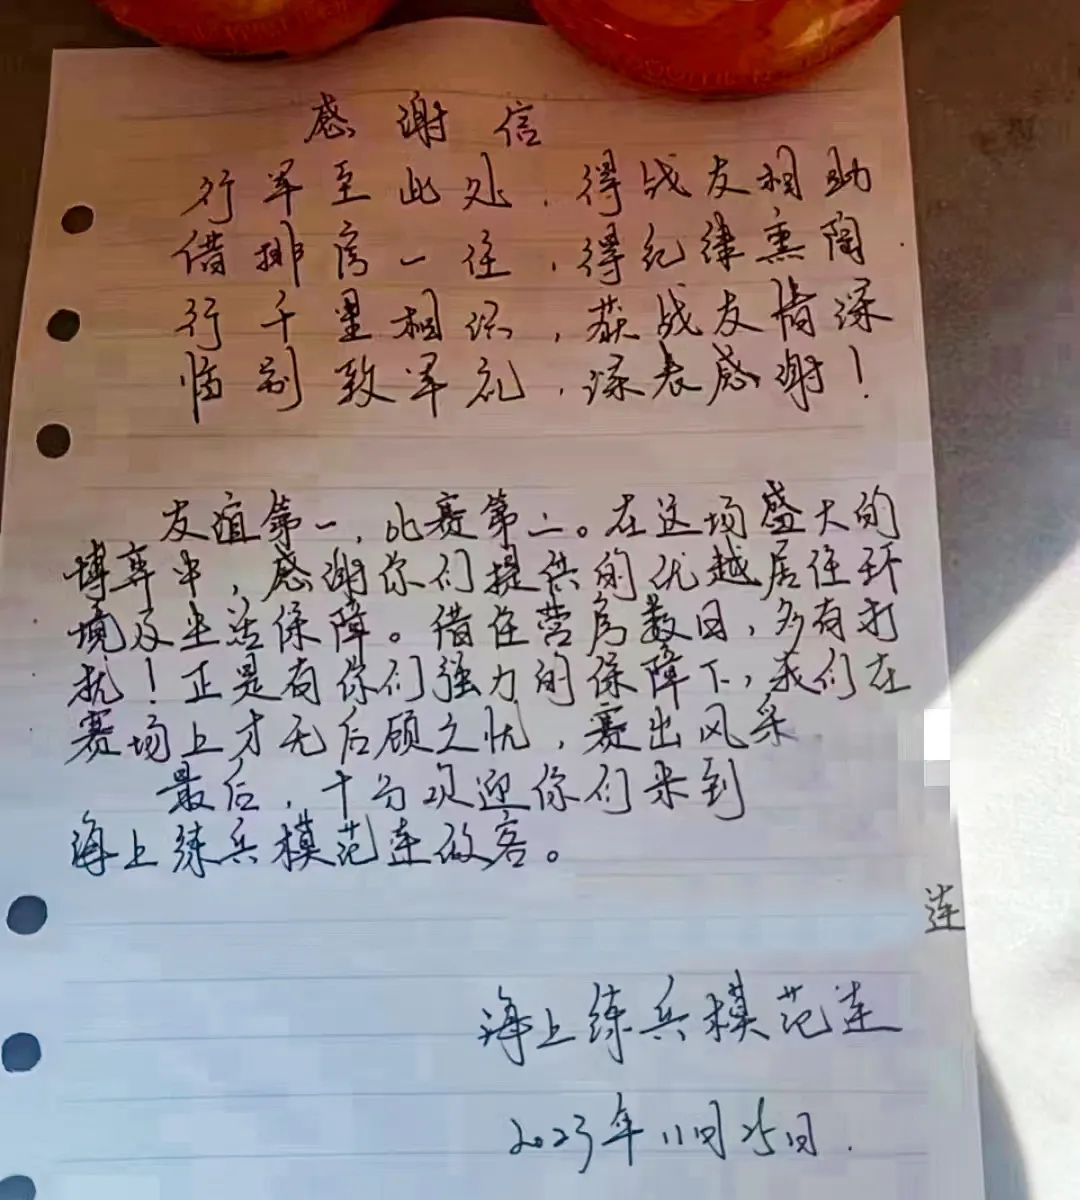 感谢信
行军至此处,得战友相助
借排房一住,得纪律熏陶
行千里相识,获战友情深
临别致军礼,深表感谢!
友谊第一,比赛第二。在这场盛大的
博弈中,感谢你们提供的优越居住环
境及生活保障。借住营房数日,多有打
扰!正是有你们强力的保障下,我们在
赛场上才无后顾之忧,赛出风采
最后,十分欢迎你们来到
海上练兵模范连做客。
连
海上练兵模范连
2023年11月25日.